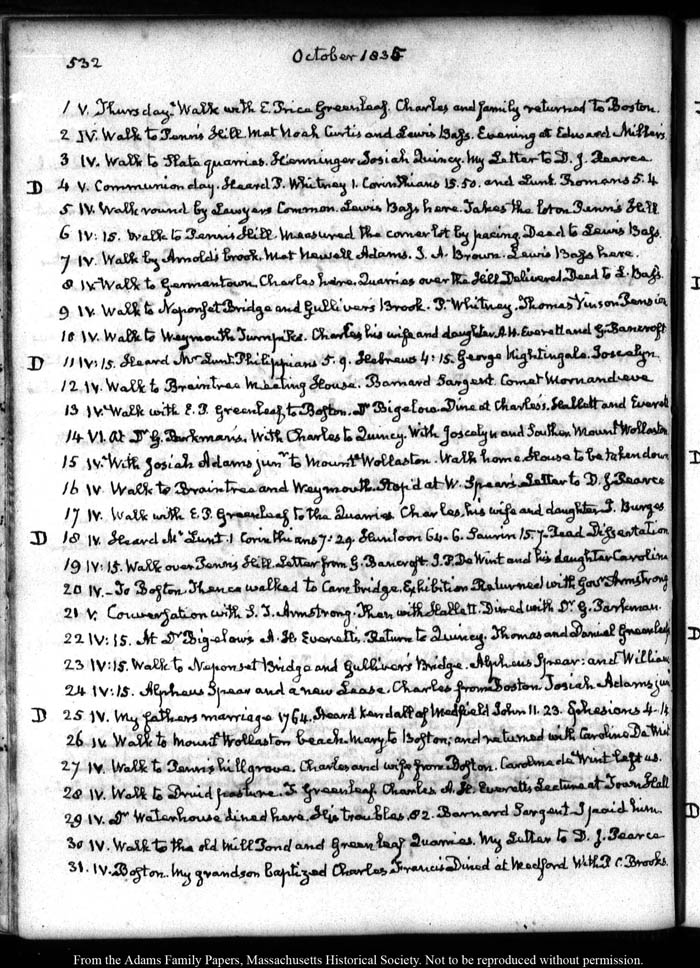 532
October 1835
1 V. Thursday. Walk with E. Price Greenleaf. Charles and family returned to Boston.
2 IV. Walk to Penn's Hill. Met Noah Curtis and Lewis Bass. Evening at Edward Miller's
3 IV. Walk to Slate quarries. Josiah Quincy. My Letter to D. J. Pearce
D 4 V. Communion day. Heard P. Whitney 1. Corinthians 15.50. and Lunt. Romans 5.4
5 IV. Walk round by Lawyers Common. Lewis Bass here. Takes the lot on Penn's Hill
6 IV:15. Walk to Penn's Hill. Measured the corner lot by pacing. Deed to Lewis Bass
7 IV. Walk by Arnold's brook. Met Newell Adams. J. A. Brown. Lewis Bass here.
8 IV. Walk to Germantown. Charles here. Quarries over the Hill Delivered Deed to L. Bass
9 IV. Walk to Neponset Bridge and Gulliver's Brook. P. Whitney. Thomas Vinson Pension
10 IV. Walk to Weymouth Turnpike. Charles his wife and daughter. A. H. Everett and G. Bancroft
D 11 IV:15. Heard Mr Lunt. Philippians 5.9. Hebrews 4:15. George Nightingale. Joscelyn
12 IV. Walk to Braintree Meeting House. Barnard Sargent. Comet Morn and eve
13 IV. Walk with E. P. Greenleaf to Boston. Dr Bigelow. Dine at Charles's. Hallett and Everett
14 VI. At Dr G. Parkman's. With Charles to Quincy. With Joscelyn and Souther Mount Wollaston
15 IV. With Josiah Adams junr to Mount Wollaston. Walk home. House to be taken down
16 IV. Walk to Braintree and Weymouth. Stop'd at W. Spear's Letter to D. J. Pearce
17 IV. Walk with E. P. Greenleaf to the Quarries. Charles, his wife and daughter. T. Burges
D 18 IV. Heard Mr Lunt. 1 Corinthians 7:29. 64.6. Saurin 15.7. Read Dissertation
19 IV:15. Walk over Penn's Hill. Letter from G. Bancroft. J. P. De Wint and his daughter Caroline
20 IV. To Boston. Thence walked to Cambridge. Exhibition Returned with Govr Armstrong
21 V. Conversation with S. T. Armstrong. Then with Hallett. Dined with Dr G. Parkman.
22 IV:15. At Dr Bigelow's A. H. Everett's. Return to Quincy. Thomas and Daniel Greenleaf
23 IV:15. Walk to Neponset Bridge and Gulliver's Bridge. Alpheus Spear: and William
24 IV:15. Alpheus Spear and a new Lease. Charles from Boston Josiah Adams jun
D 25 IV. My fathers marriage 1764. Heard Kendall of Medfield John 11.23. Ephesians 4.14
26 IV. Walk to Mount Wollaston beach. Mary to Boston; and returned with Caroline De Wint
27 IV. Walk to Penn's hill grove. Charles and wife from Boston. Caroline de Wint left us.
28 IV. Walk to Druid pasture. T Greenleaf. Charles A. H. Everett's Lecture at Town Hall
29 IV. Dr Waterhouse dined here. His troubles. 82. Barnard Sargent I paid him.
30 IV. Walk to the old Mill Pond and Greenleaf Quarries. My Letter to D. J. Pearce
31. IV. Boston. My grandson baptized Charles Francis Dined at Medford With P. C. Brooks.
From the Adams Family Papers, Massachusetts Historical Society. Not to be reproduced without permission.